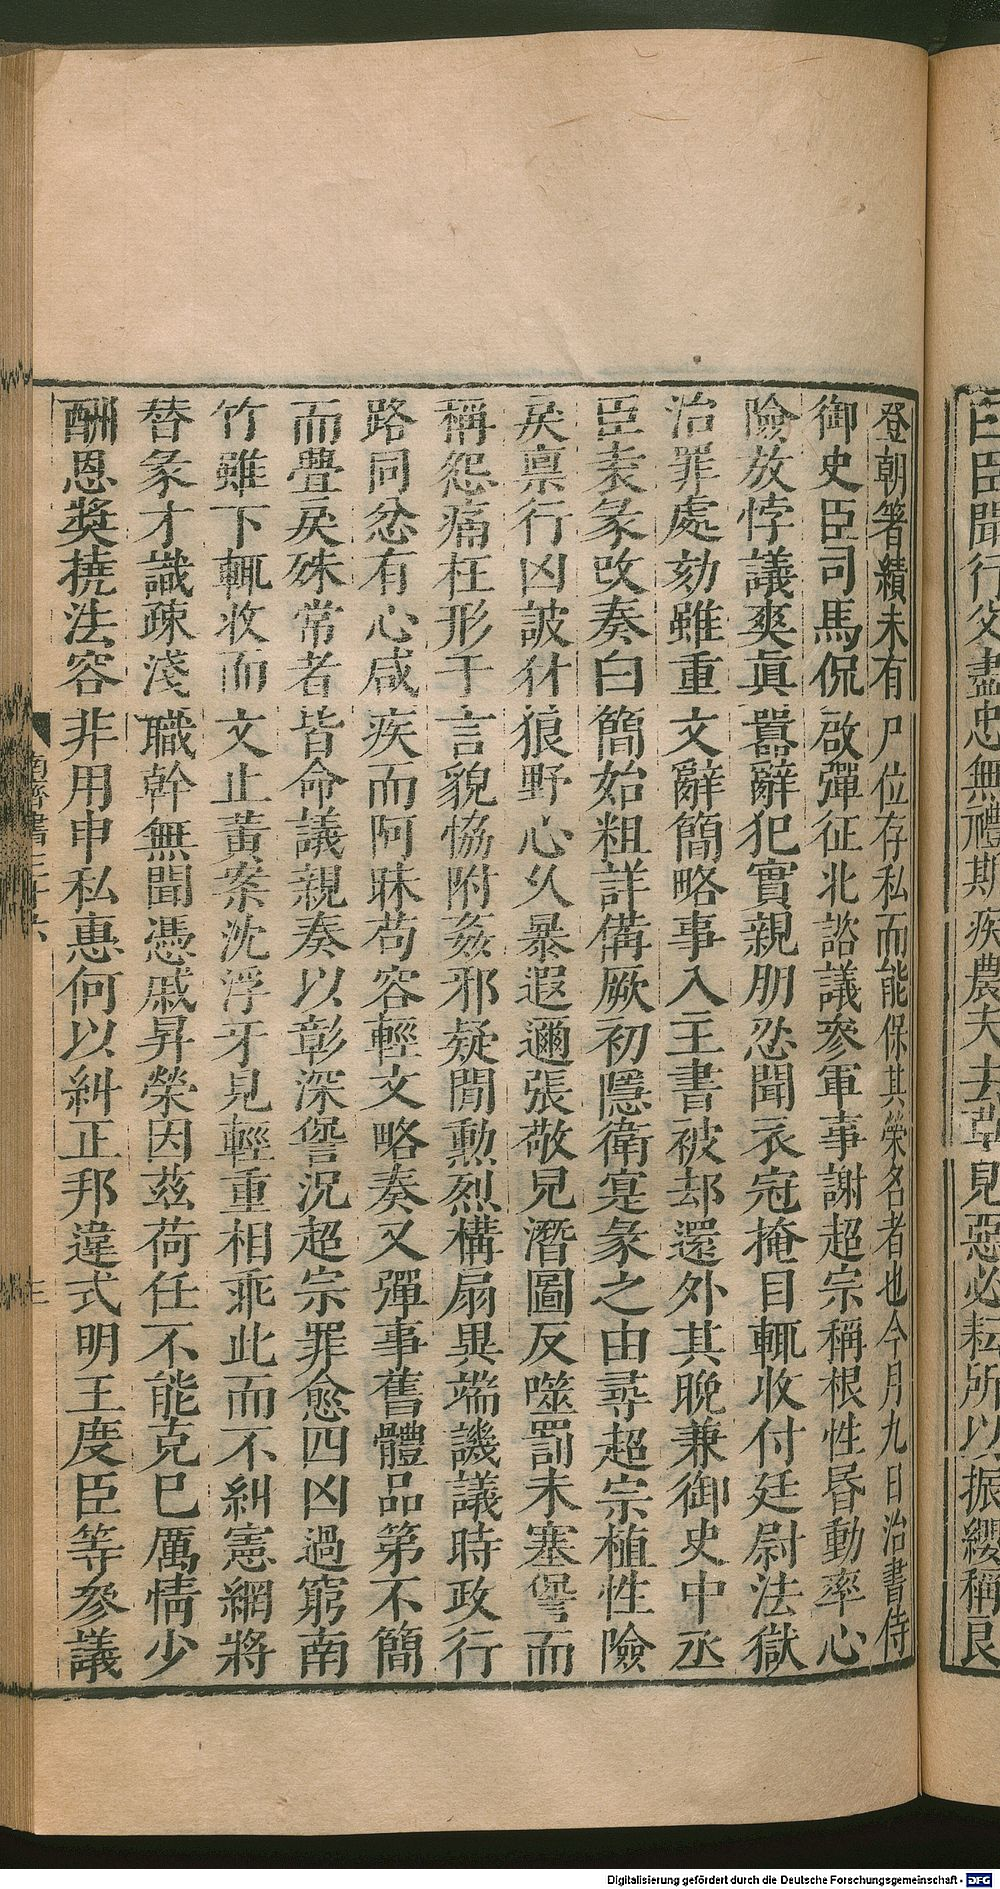 曰臣聞行父盡忠無禮斯疾農夫去草見惡必耘所以振纓稱良
登朝著績未有尸位存私而能保其榮名者也今月九日治書侍
御史臣司馬侃啟彈征北諮議參軍事謝超宗稱根性昏動率心
險放悖議爽真囂辭犯實親朋忍聞衣冠掩目輒收付廷尉法獄
治罪處劾雖重文辭簡略事入主書被却還外其晚兼御史中丞
臣袁彖改奏白簡始粗詳備厥初隱衛寔彖之由尋超宗植性險
戾禀行凶詖豺狼野心久暴遐邇張敬兒潛圖反噬罰未塞愆而
稱怨痛枉形于言貌恊附姦邪疑閒勳烈構扇異端譏議時政行
路同忿有心咸疾而阿昧苟容輕文略奏又彈事舊體品第不簡
而舋戾殊常者皆命議親奏以彰深愆況超宗罪愈四凶過窮南
竹雖下輒收而文止黃案沈浮牙見輕重相乖此而不糾憲網將
替彖才識疎淺職幹無聞憑戚昇榮因茲荷任不能克已厲情少
酬恩獎撓法容非用申私惠何以糾正邦違式明王度臣等參議
南齊書三十六
三
Digitalisierung gefördert durch die Deutsche Forschungsgemeinschaft - DFG